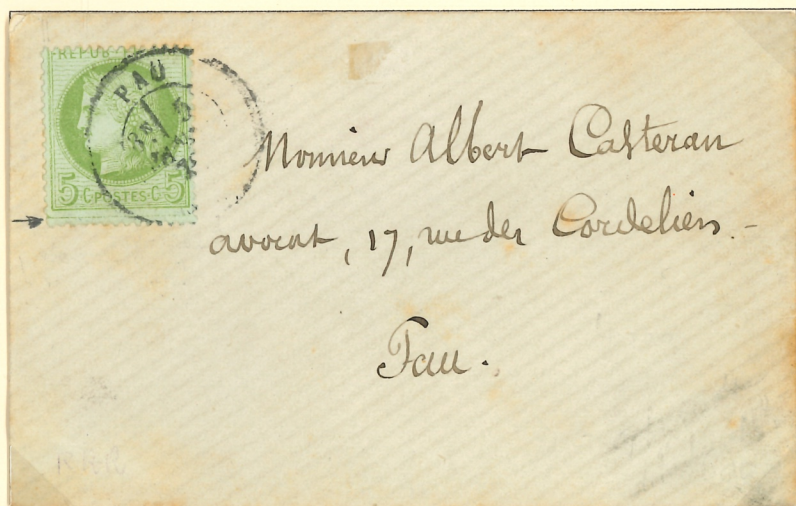 REPUB
PAU
5·C·POSTES·C·5
Monsieur Albert Casteran
avocat, 17, rue des Cordeliers.-
Pau.